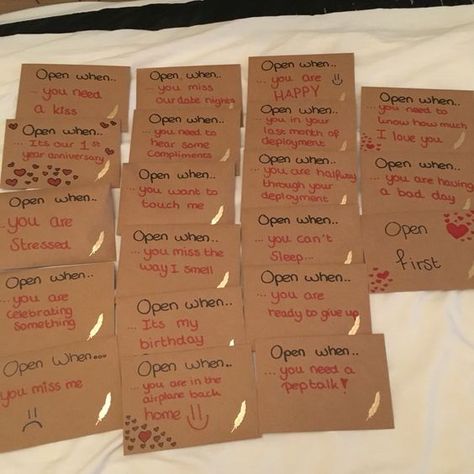 Open when..
...you need
a kiss
Open when..
Its our 1st
year anniversary
Open when..
...you are
Stressed
Open when..
...you are
celebrating
something
Open when...
you miss me
Open when..
...you miss
our date nights
Open when..
...you need to
hear some
compliments
Open when..
...you want to
touch me
Open when..
...you miss the
way I smell
Open when..
...Its my
birthday
Open when..
...you are in the
airplane back
home
Open when..
...you are
HAPPY
Open when..
...you in your
last month of
deployment
Open when..
...you are halfway
through your
deployment
Open when..
...you can't
Sleep...
Open when..
...you are
ready to give up
Open when..
...you need a
pep talk!
Open when..
...you need to
know how much
I love you
Open when..
...you are having
a bad day
Open
first